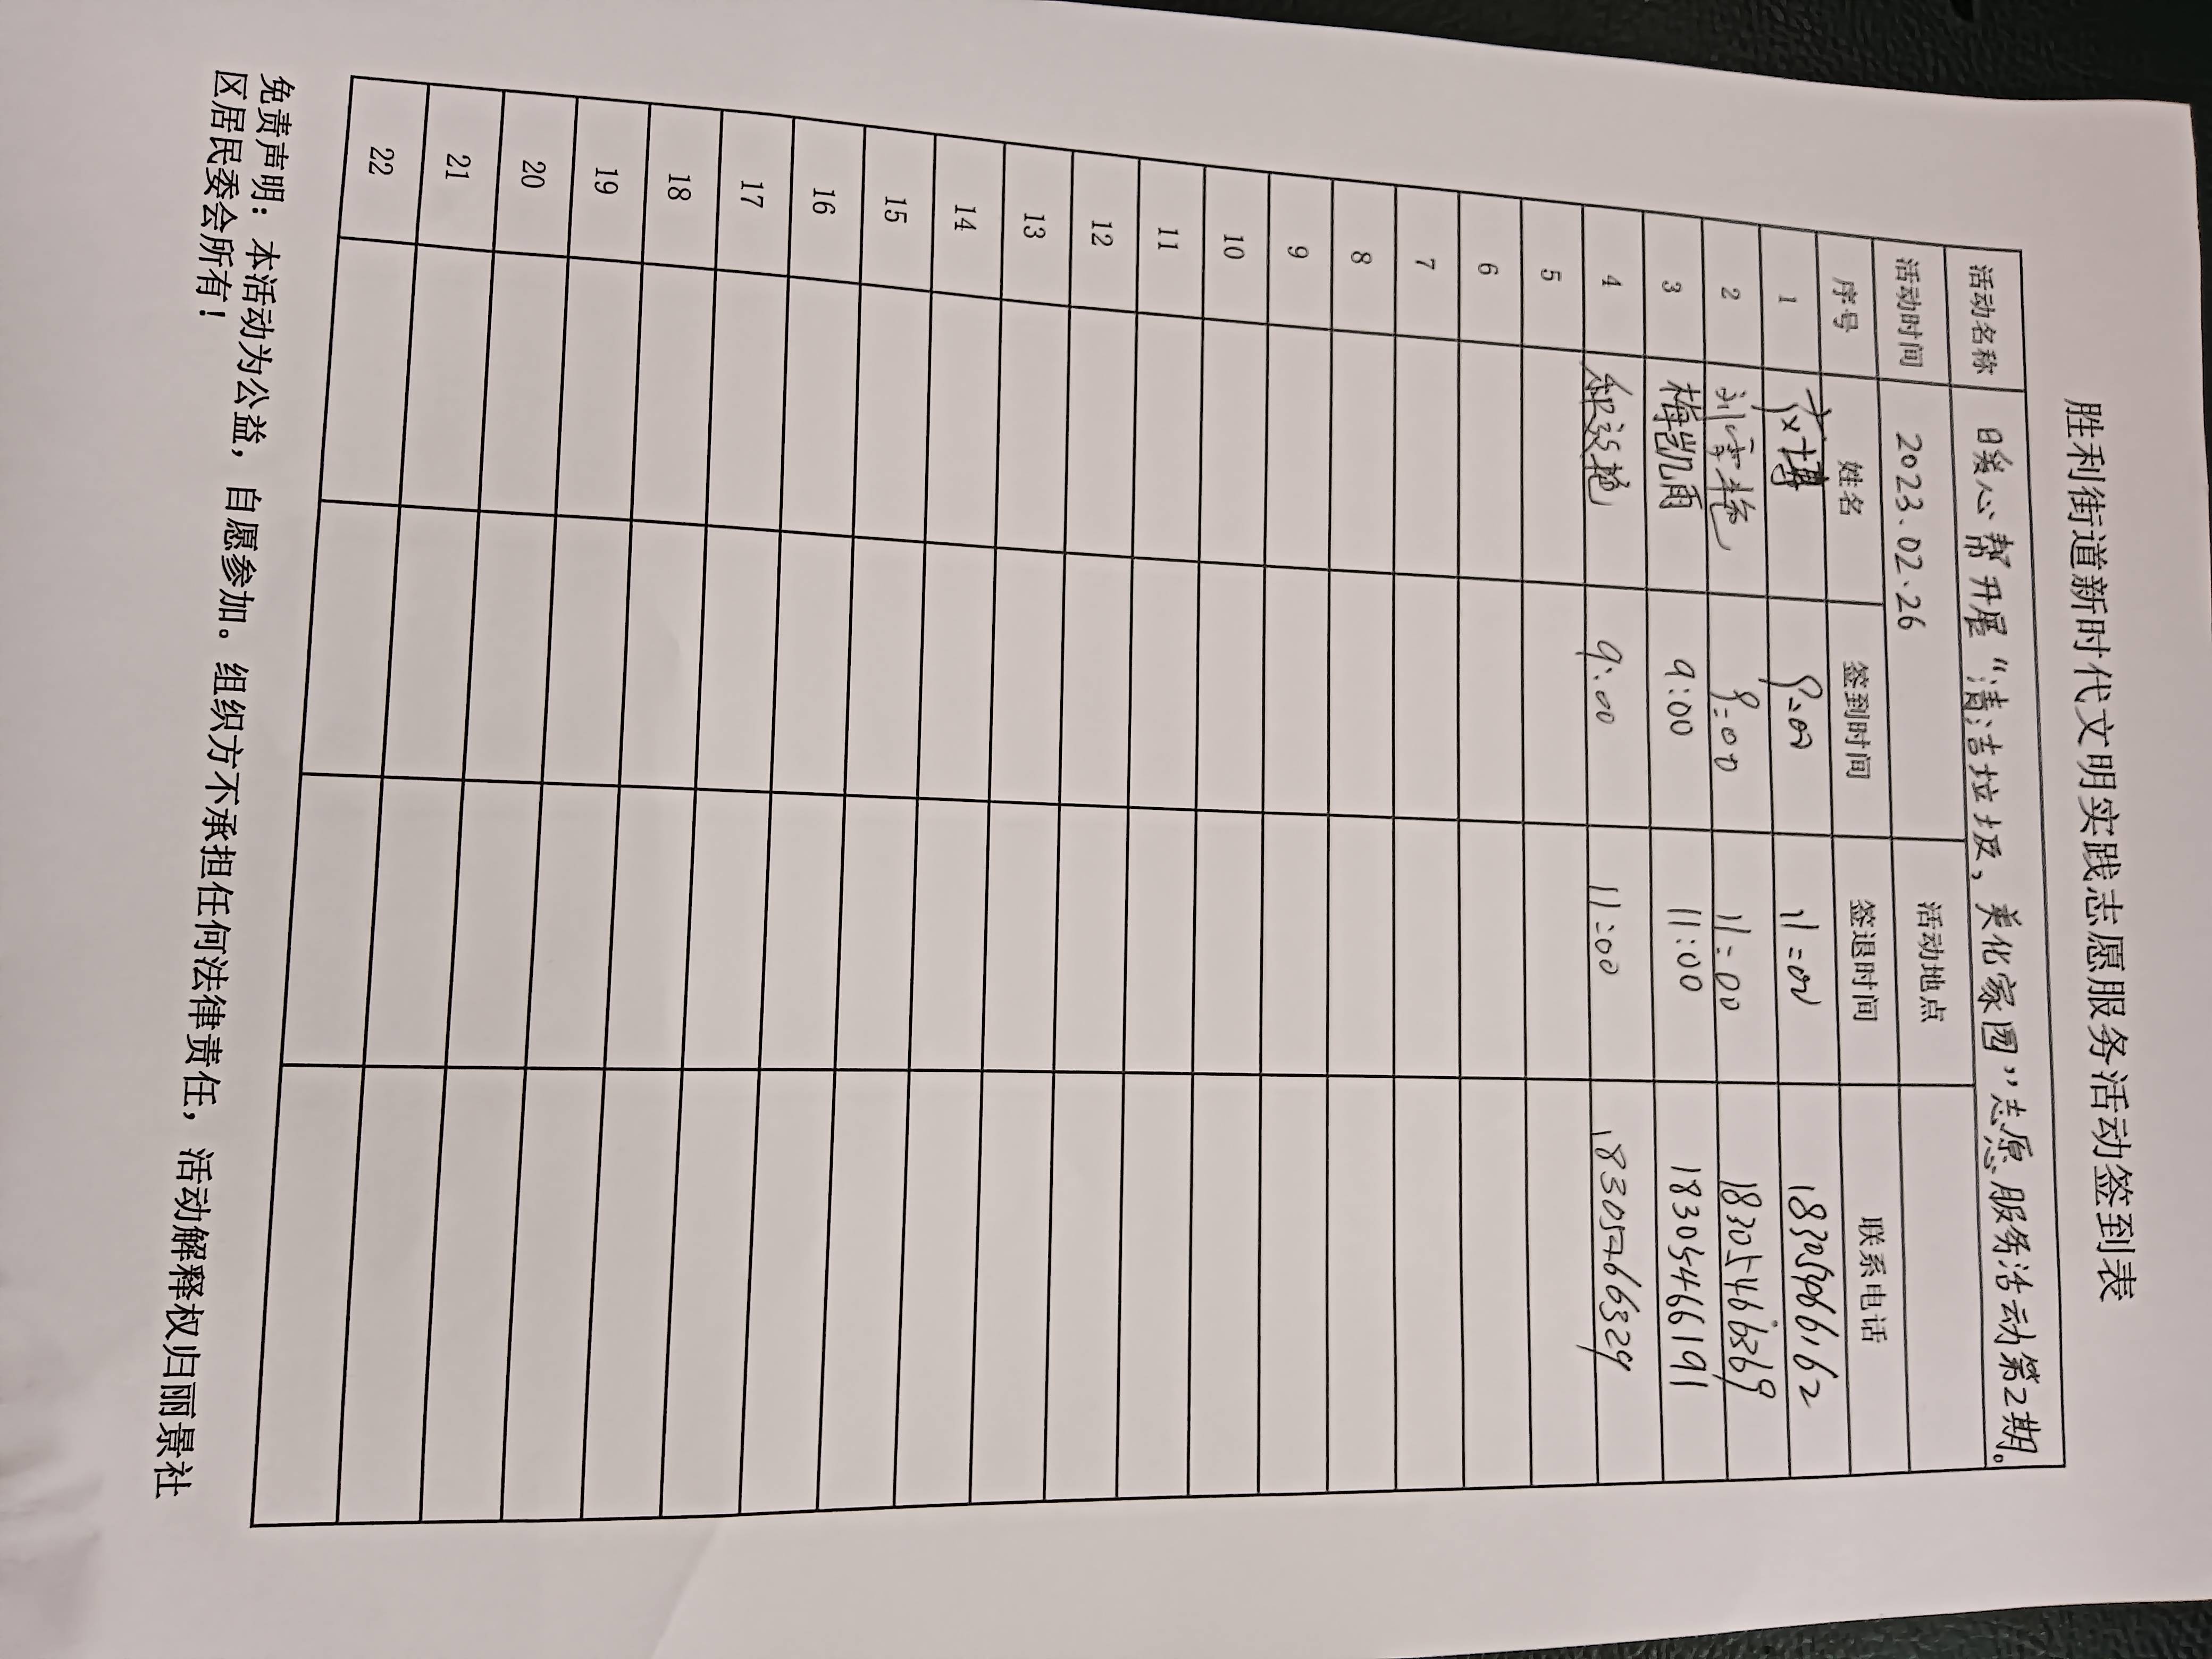 胜利街道新时代文明实践志愿服务活动签到表
活动名称 暖心帮开展“清洁垃圾，美化家园”志愿服务活动第2期。
活动时间 2023.02.26 活动地点
序号 姓名 签到时间 签退时间 联系电话
1 9:00 11:00 18305466162
2 刘雪艳 9:00 11:00 18305466369
3 梅凯雨 9:00 11:00 18305466191
4 9:00 11:00 18305466329
5
6
7
8
9
10
11
12
13
14
15
16
17
18
19
20
21
22
免责声明：本活动为公益，自愿参加。组织方不承担任何法律责任，活动解释权归丽景社
区居民委会所有！